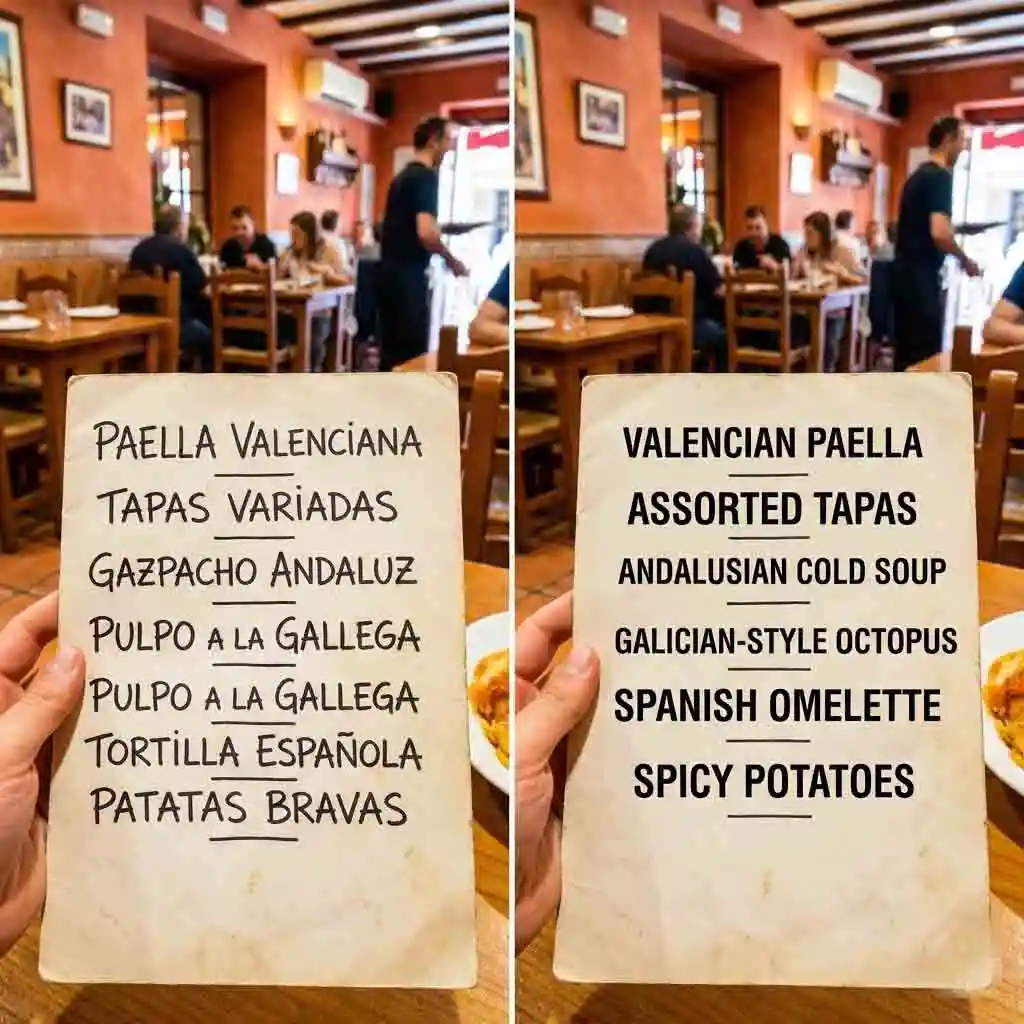 PAELLA VALENCIANA
TAPAS VARIADAS
GAZPACHO ANDALUZ
PULPO A LA GALLEGA
PULPO A LA GALLEGA
TORTILLA ESPAÑOLA
PATATAS BRAVAS
VALENCIAN PAELLA
ASSORTED TAPAS
ANDALUSIAN COLD SOUP
GALICIAN-STYLE OCTOPUS
SPANISH OMELETTE
SPICY POTATOES